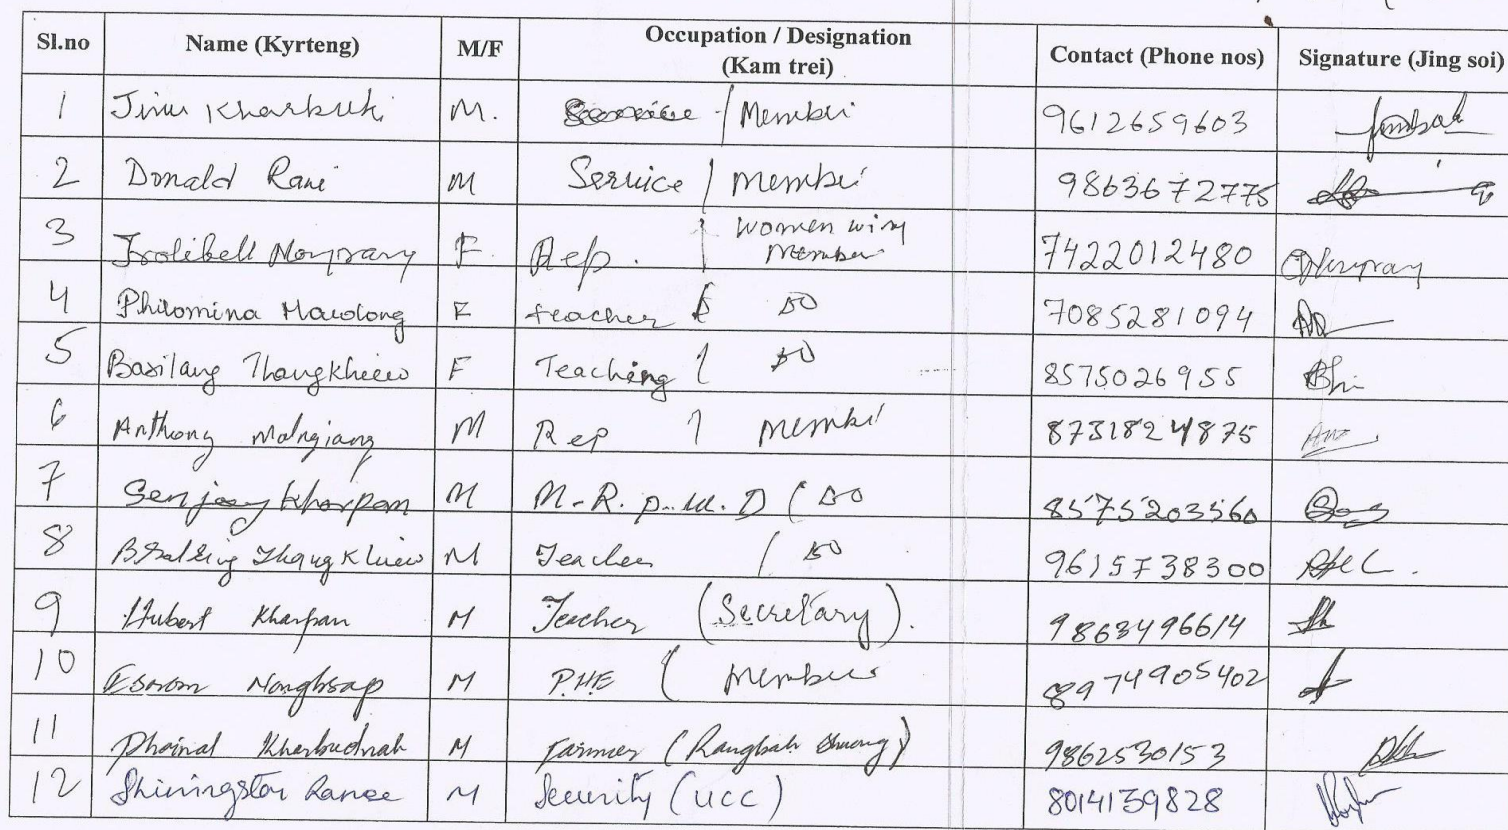 Sl.no Name (Kyrteng) M/F Occupation / Designation (Kam trei) Contact (Phone nos) Signature (Jing soi)
1 Jinu Kharbuki M. Service / Member 9612659603
2 Donald Rani M Service / Member 9863672775
3 F Rep. / Women wing Member 7422012480
4 Philomina Mawlong F teacher DO 7085281094
5 Basilang Thangkhiew F Teaching / DO 8575026955
6 Anthony Malngiang M Rep / Member 8731824875
7 Senjoey Kharpan M M-R. P.W.D ( DO 8575203560
8 Thangkhiew M Teacher / DO 9615738300
9 Hubert Kharpan M Teacher (Secretary). 9863496614
10 Nongbsap M P.H.E ( Member 8974905402
11 Phoinal Kharbudnah M Farmer (Rangbah Shnong) 9862530153
12 Shiningstar Ranee M Security (UCC) 8014139828